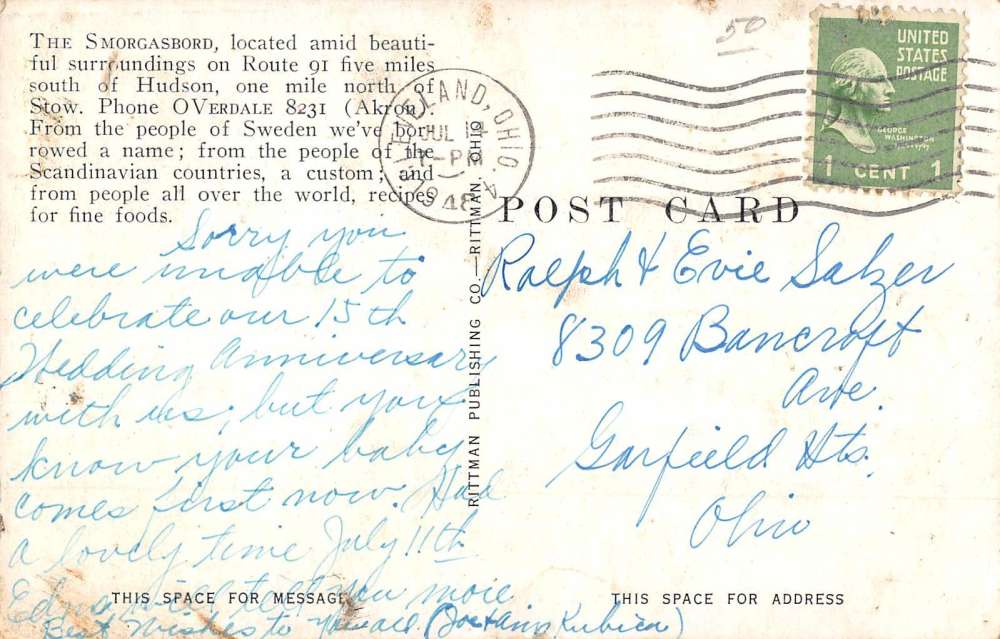 THE SMORGASBORD, located amid beauti-
ful surroundings on Route 91 five miles
south of Hudson, one mile north of
Stow. Phone OVERDALE 8231 (Akron).
From the people of Sweden we've bor-
rowed a name; from the people of the
Scandinavian countries, a custom; and
from people all over the world, recipes
for fine foods.
Sorry you
were unable to
celebrate our 15th
Wedding Anniversary
with us, but you
know your baby
comes first now. Had
a lovely time July 11th
Edna will tell you more
Best Wishes to You all (Joe + Kubica)
THIS SPACE FOR MESSAGE
RITTMAN PUBLISHING CO.—RITTMAN, OHIO
50
CLEVELAND, OHIO. 4
JUL
PM
1948
UNITED
STATES
POSTAGE
GEORGE
WASHINGTON
1 CENT 1
POST CARD
Ralph & Evie Salzer
8309 Bancroft
Ave.
Garfield Hts.
Ohio
THIS SPACE FOR ADDRESS